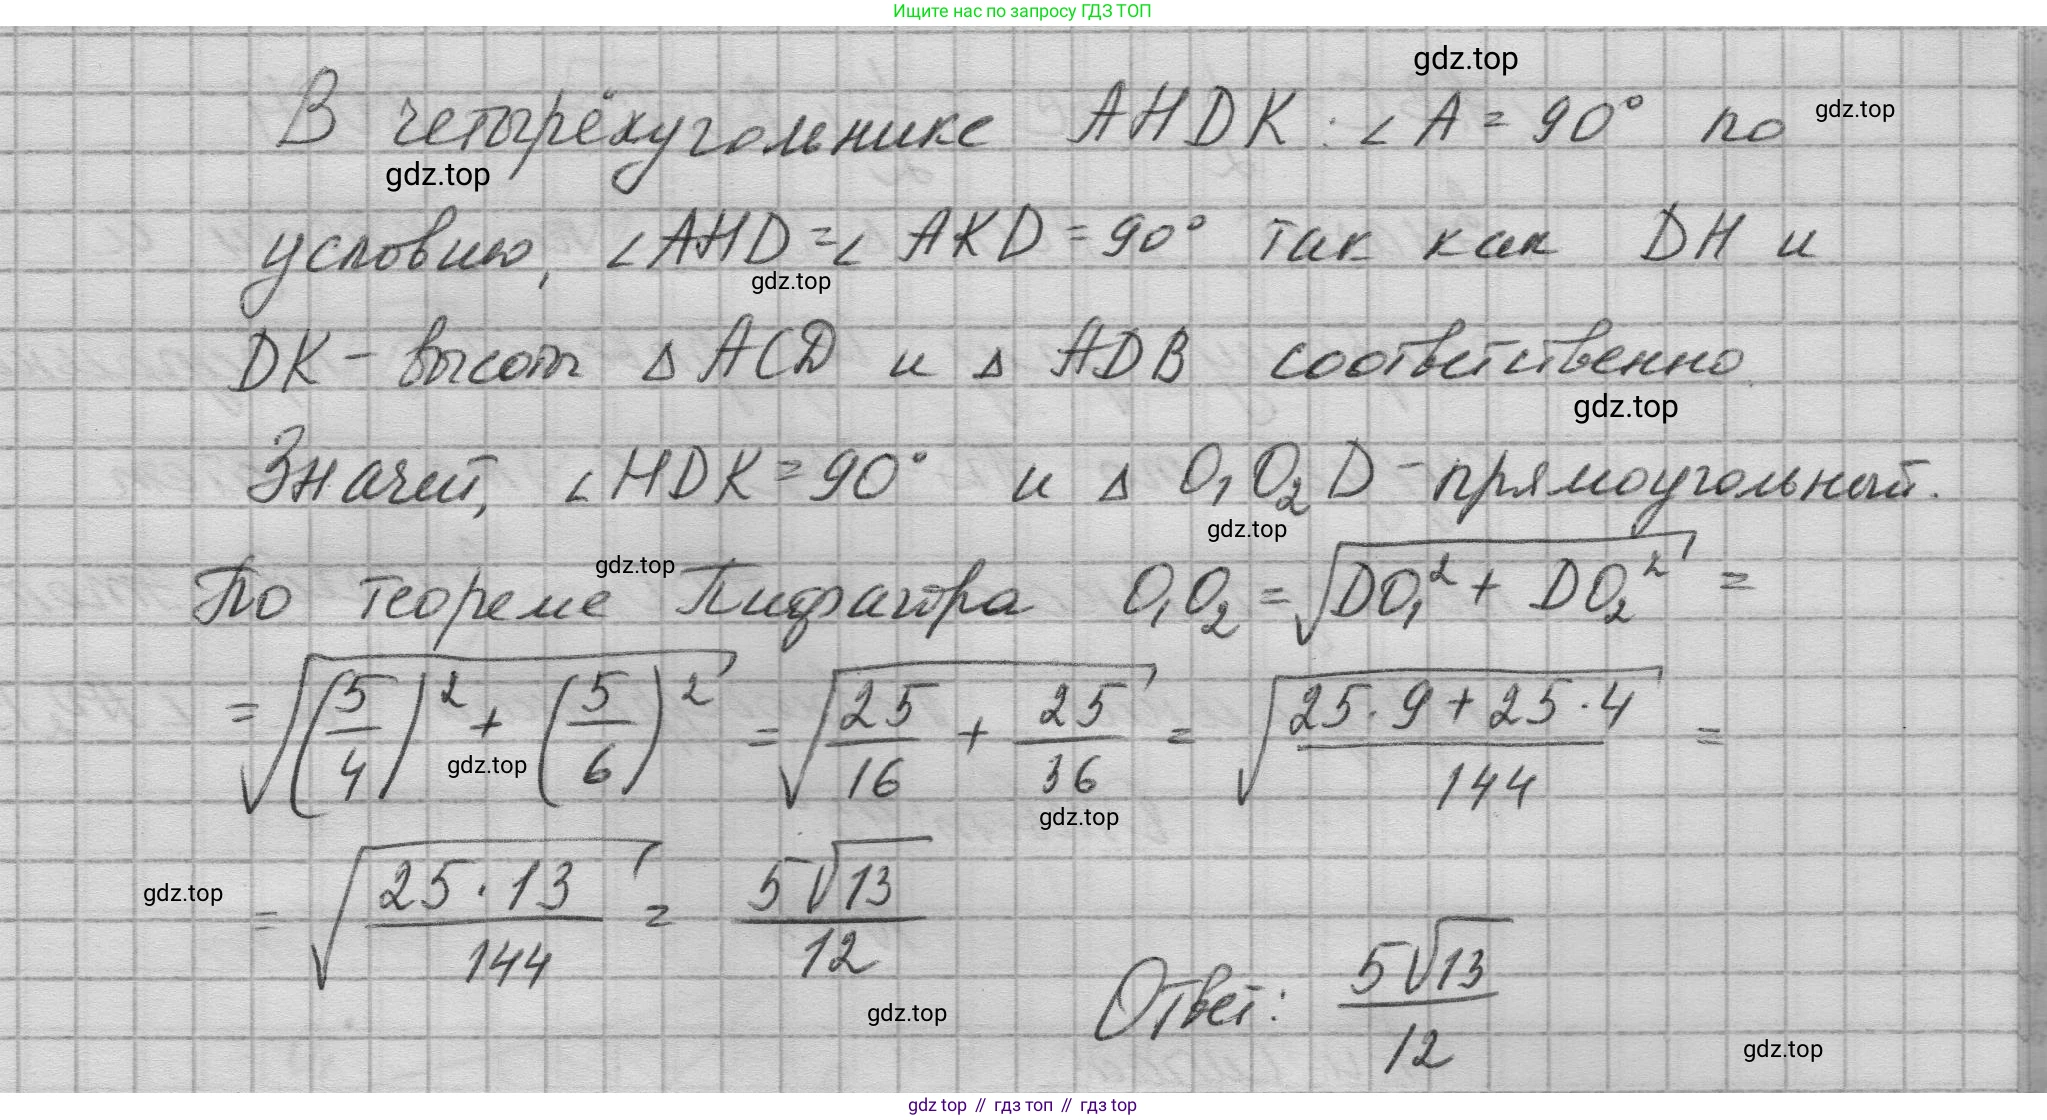 Ищите нас по запросу ГДЗ ТОП
gdz.top
В четырёхугольнике AHDK : ∠A = 90° по
gdz.top
gdz.top
условию, ∠AHD = ∠AKD = 90° так как DH и
gdz.top
DK - высоты △ACD и △ADB соответственно.
gdz.top
Значит, ∠HDK = 90° и △O₁O₂D - прямоугольный.
gdz.top
gdz.top
По теореме Пифагора O₁O₂ = √(DO₁² + DO₂²) =
= √((5/4)² + (5/6)²) = √(25/16 + 25/36) = √((25·9 + 25·4)/144) =
gdz.top
gdz.top
= √(25·13/144) = 5√13/12
gdz.top
Ответ: 5√13/12
gdz.top
gdz.top
gdz top // гдз топ // гдз top